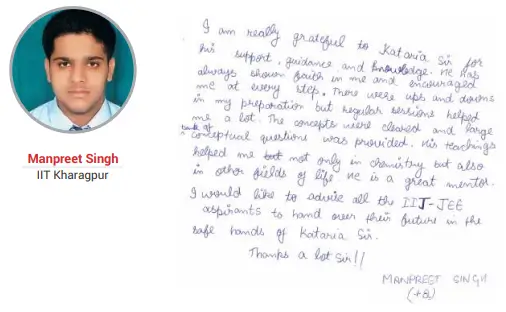 Manpreet Singh
IIT Kharagpur
I am really grateful to Kataria Sir for
his support, guidance and knowledge. He has
always shown faith in me and encouraged
me at every step. There were ups and downs
in my preparation but regular sessions helped
me a lot. The concepts were cleared and large
bank of conceptual questions was provided. His teachings
helped me but not only in chemistry but also
in other fields of life He is a great mentor.
I would like to advise all the IIT-JEE
aspirants to hand over their future in the
safe hands of Kataria Sir.
Thanks a lot Sir!!
MANPREET SINGH